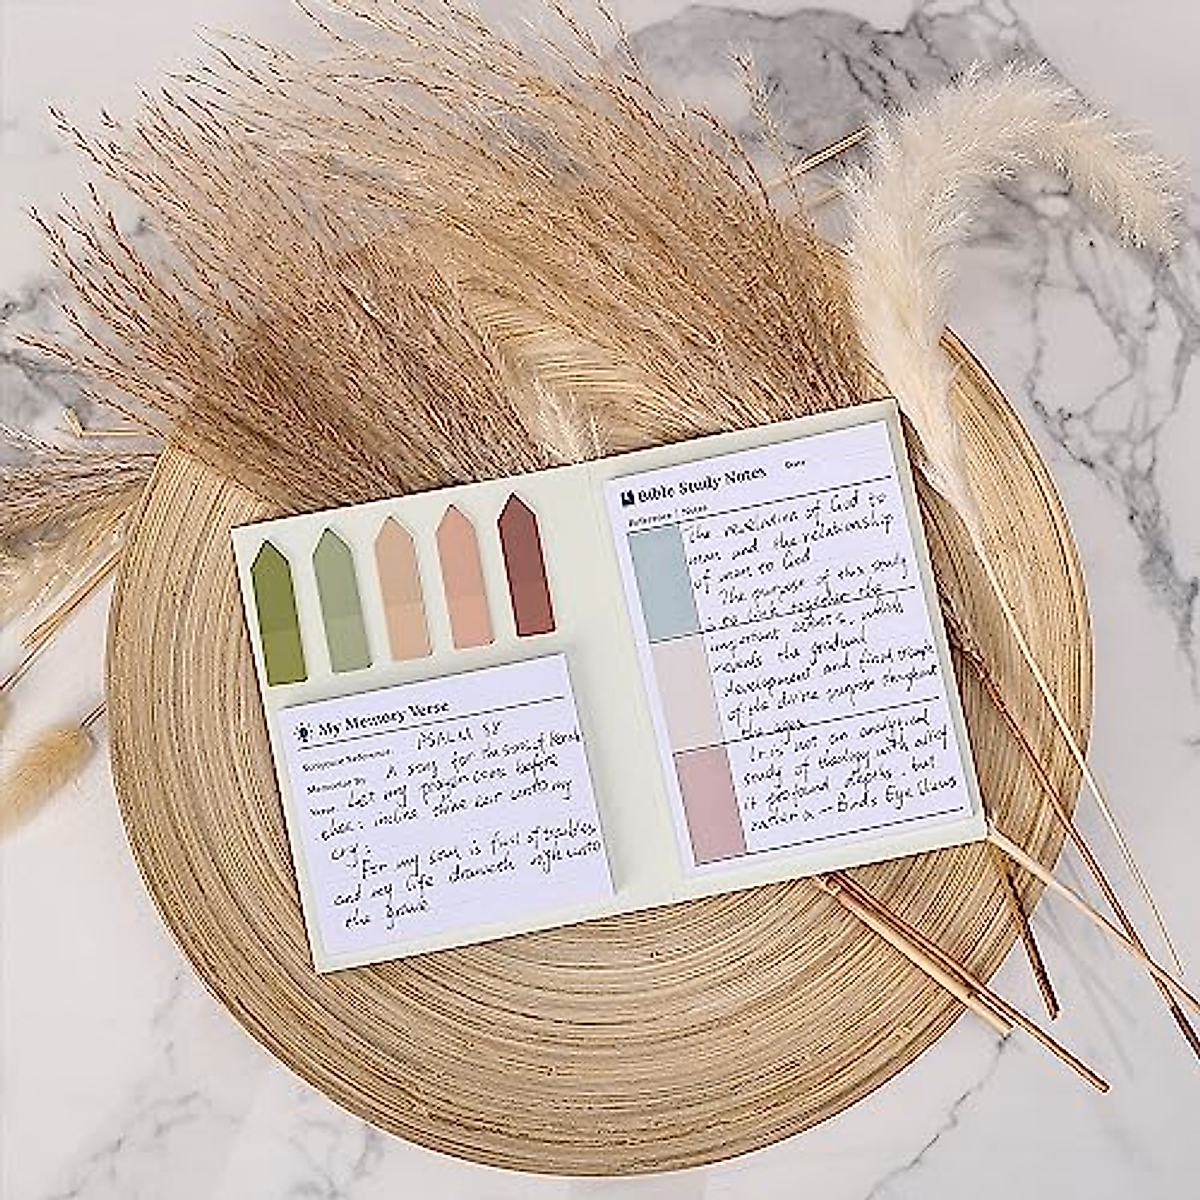 My Memory Verse
Scripture Reference:
PSALM 88
Memorized By
A song for the sons of Korah
Verse
Let my prayer come before
thee: incline thine ear unto my
cry;
For my soul is full of troubles
and my life draweth nigh unto
the grave
Bible Study Notes
Date
Reference | Notes
The revelation of God to
man and the relationship
of man to God
The purpose of this study
is to link together the
important which
reveals the gradual
development and final triumph
of his divine purpose throughout
the ages
It is not an analytical
study of theology with all of
it profound depths, but
rather a - Birds Eye Views